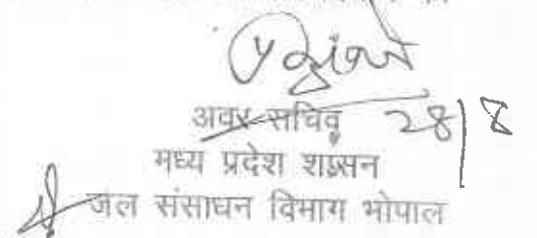 अवर सचिव
28/8
मध्य प्रदेश शासन
जल संसाधन विभाग भोपाल